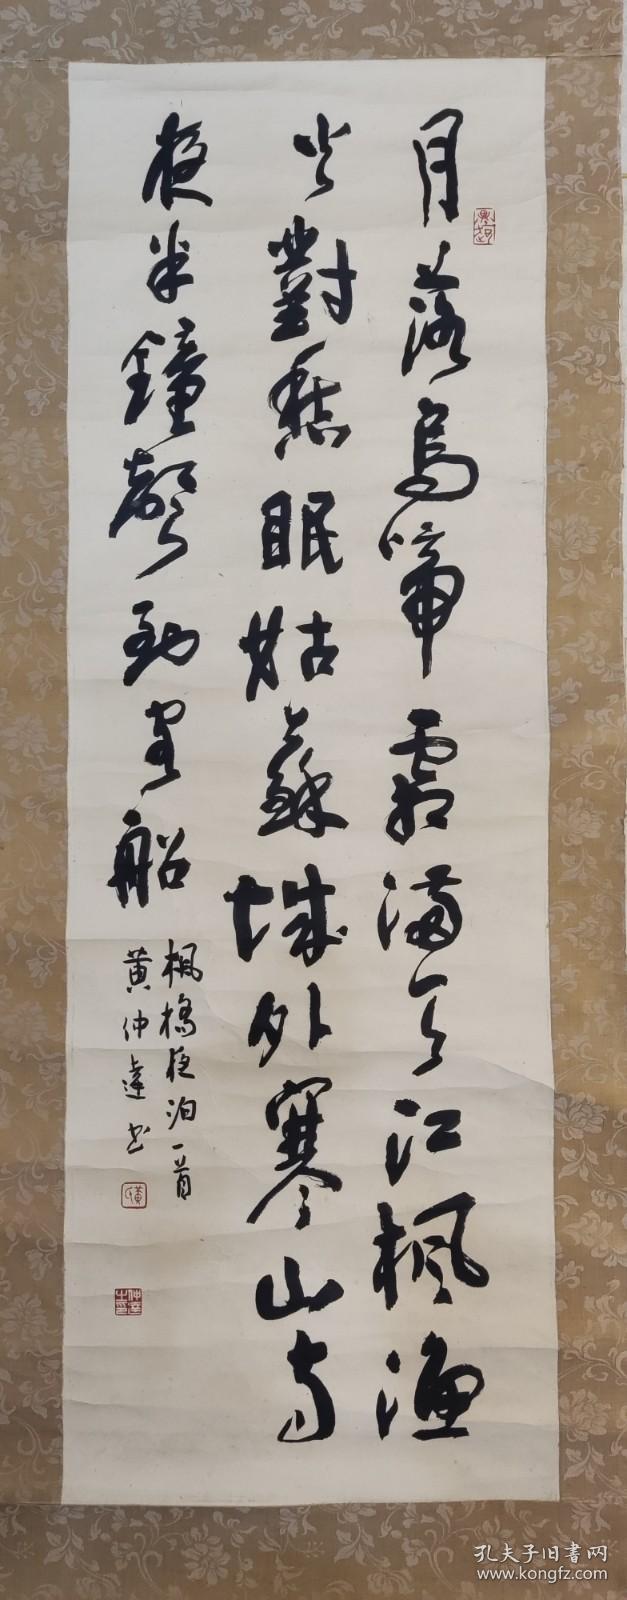 月落烏啼霜滿天江楓漁
火對愁眠姑蘇城外寒山寺
夜半鐘聲到客船
楓橋夜泊一首
黄仲達书
黄氏
仲達之印
孔夫子旧書网
www.kongfz.com